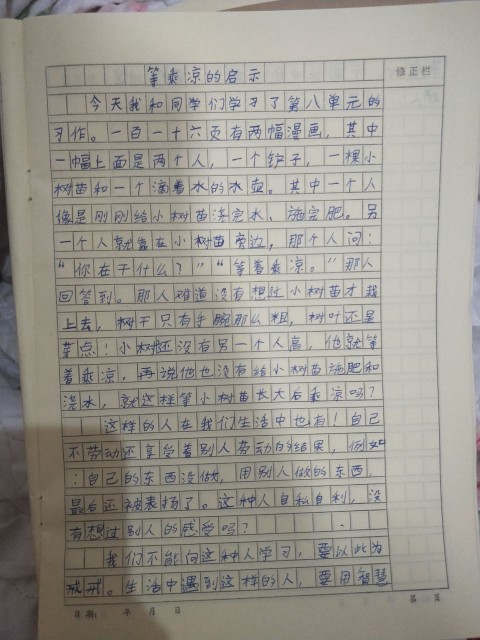 等乘凉的启示
修正栏
今天我和同学们学习了第八单元的
习作。一百一十六页有两幅漫画，其中
一幅上面是两个人，一个铲子，一棵小
树苗和一个滴着水的水壶。其中一个人
像是刚刚给小树苗浇完水、施完肥。另
一个人就靠在小树苗旁边，那个人问：
“你在干什么？”“等着乘凉。”那人
回答到。那人难道没有想过小树苗才栽
上去，树干只有手腕那么粗，树叶还是
草点！小树还没有另一个人高，他就等
着乘凉，再说他也没有给小树苗施肥和
浇水，就这样等小树苗长大后乘凉吗？
这样的人在我们生活中也有！自己
不劳动还享受着别人劳动的结果，例如
：自己的东西没做，用别人做的东西，
最后还被表扬了。这种人自私自利，没
有想过别人的感受吗？
我们不能向这种人学习，要以此为
戒。生活中遇到这样的人，要用智慧
日期： 年 月 日
第 页